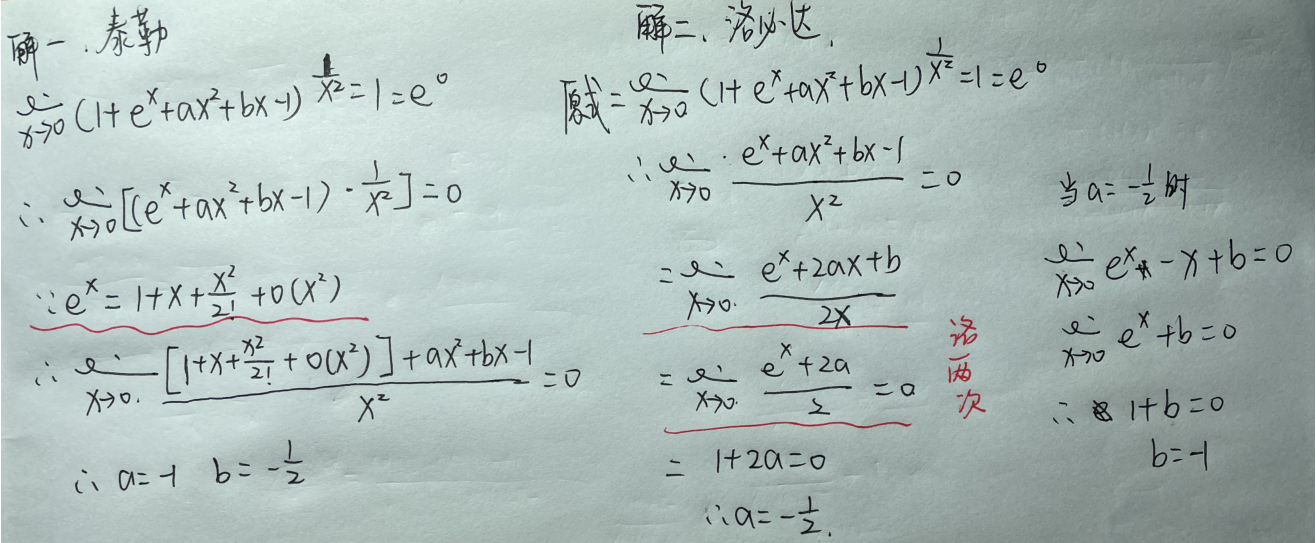 解一、泰勒
lim x→0 (1+e^x+ax²+bx-1)^(1/x²)=1=e^0
∴ lim x→0 [(e^x+ax²+bx-1)·1/x²]=0
∵ e^x=1+x+x²/2!+o(x²)
∴ lim x→0. ([1+x+x²/2!+o(x²)]+ax²+bx-1)/x² =0
∴ a=-1 b=-1/2
解二、洛必达.
原式= lim x→0 (1+e^x+ax²+bx-1)^(1/x²)=1=e^0
∴ lim x→0 (e^x+ax²+bx-1)/x² =0
= lim x→0. (e^x+2ax+b)/2x
= lim x→0. (e^x+2a)/2 =0
洛两次
= 1+2a=0
∴ a=-1/2.
当a=-1/2时
lim x→0 e^x-x+b=0
lim x→0 e^x+b=0
∴ 1+b=0
b=-1